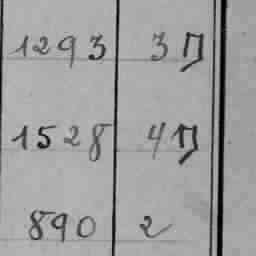 1293 3 П
1528 4 П
890 2